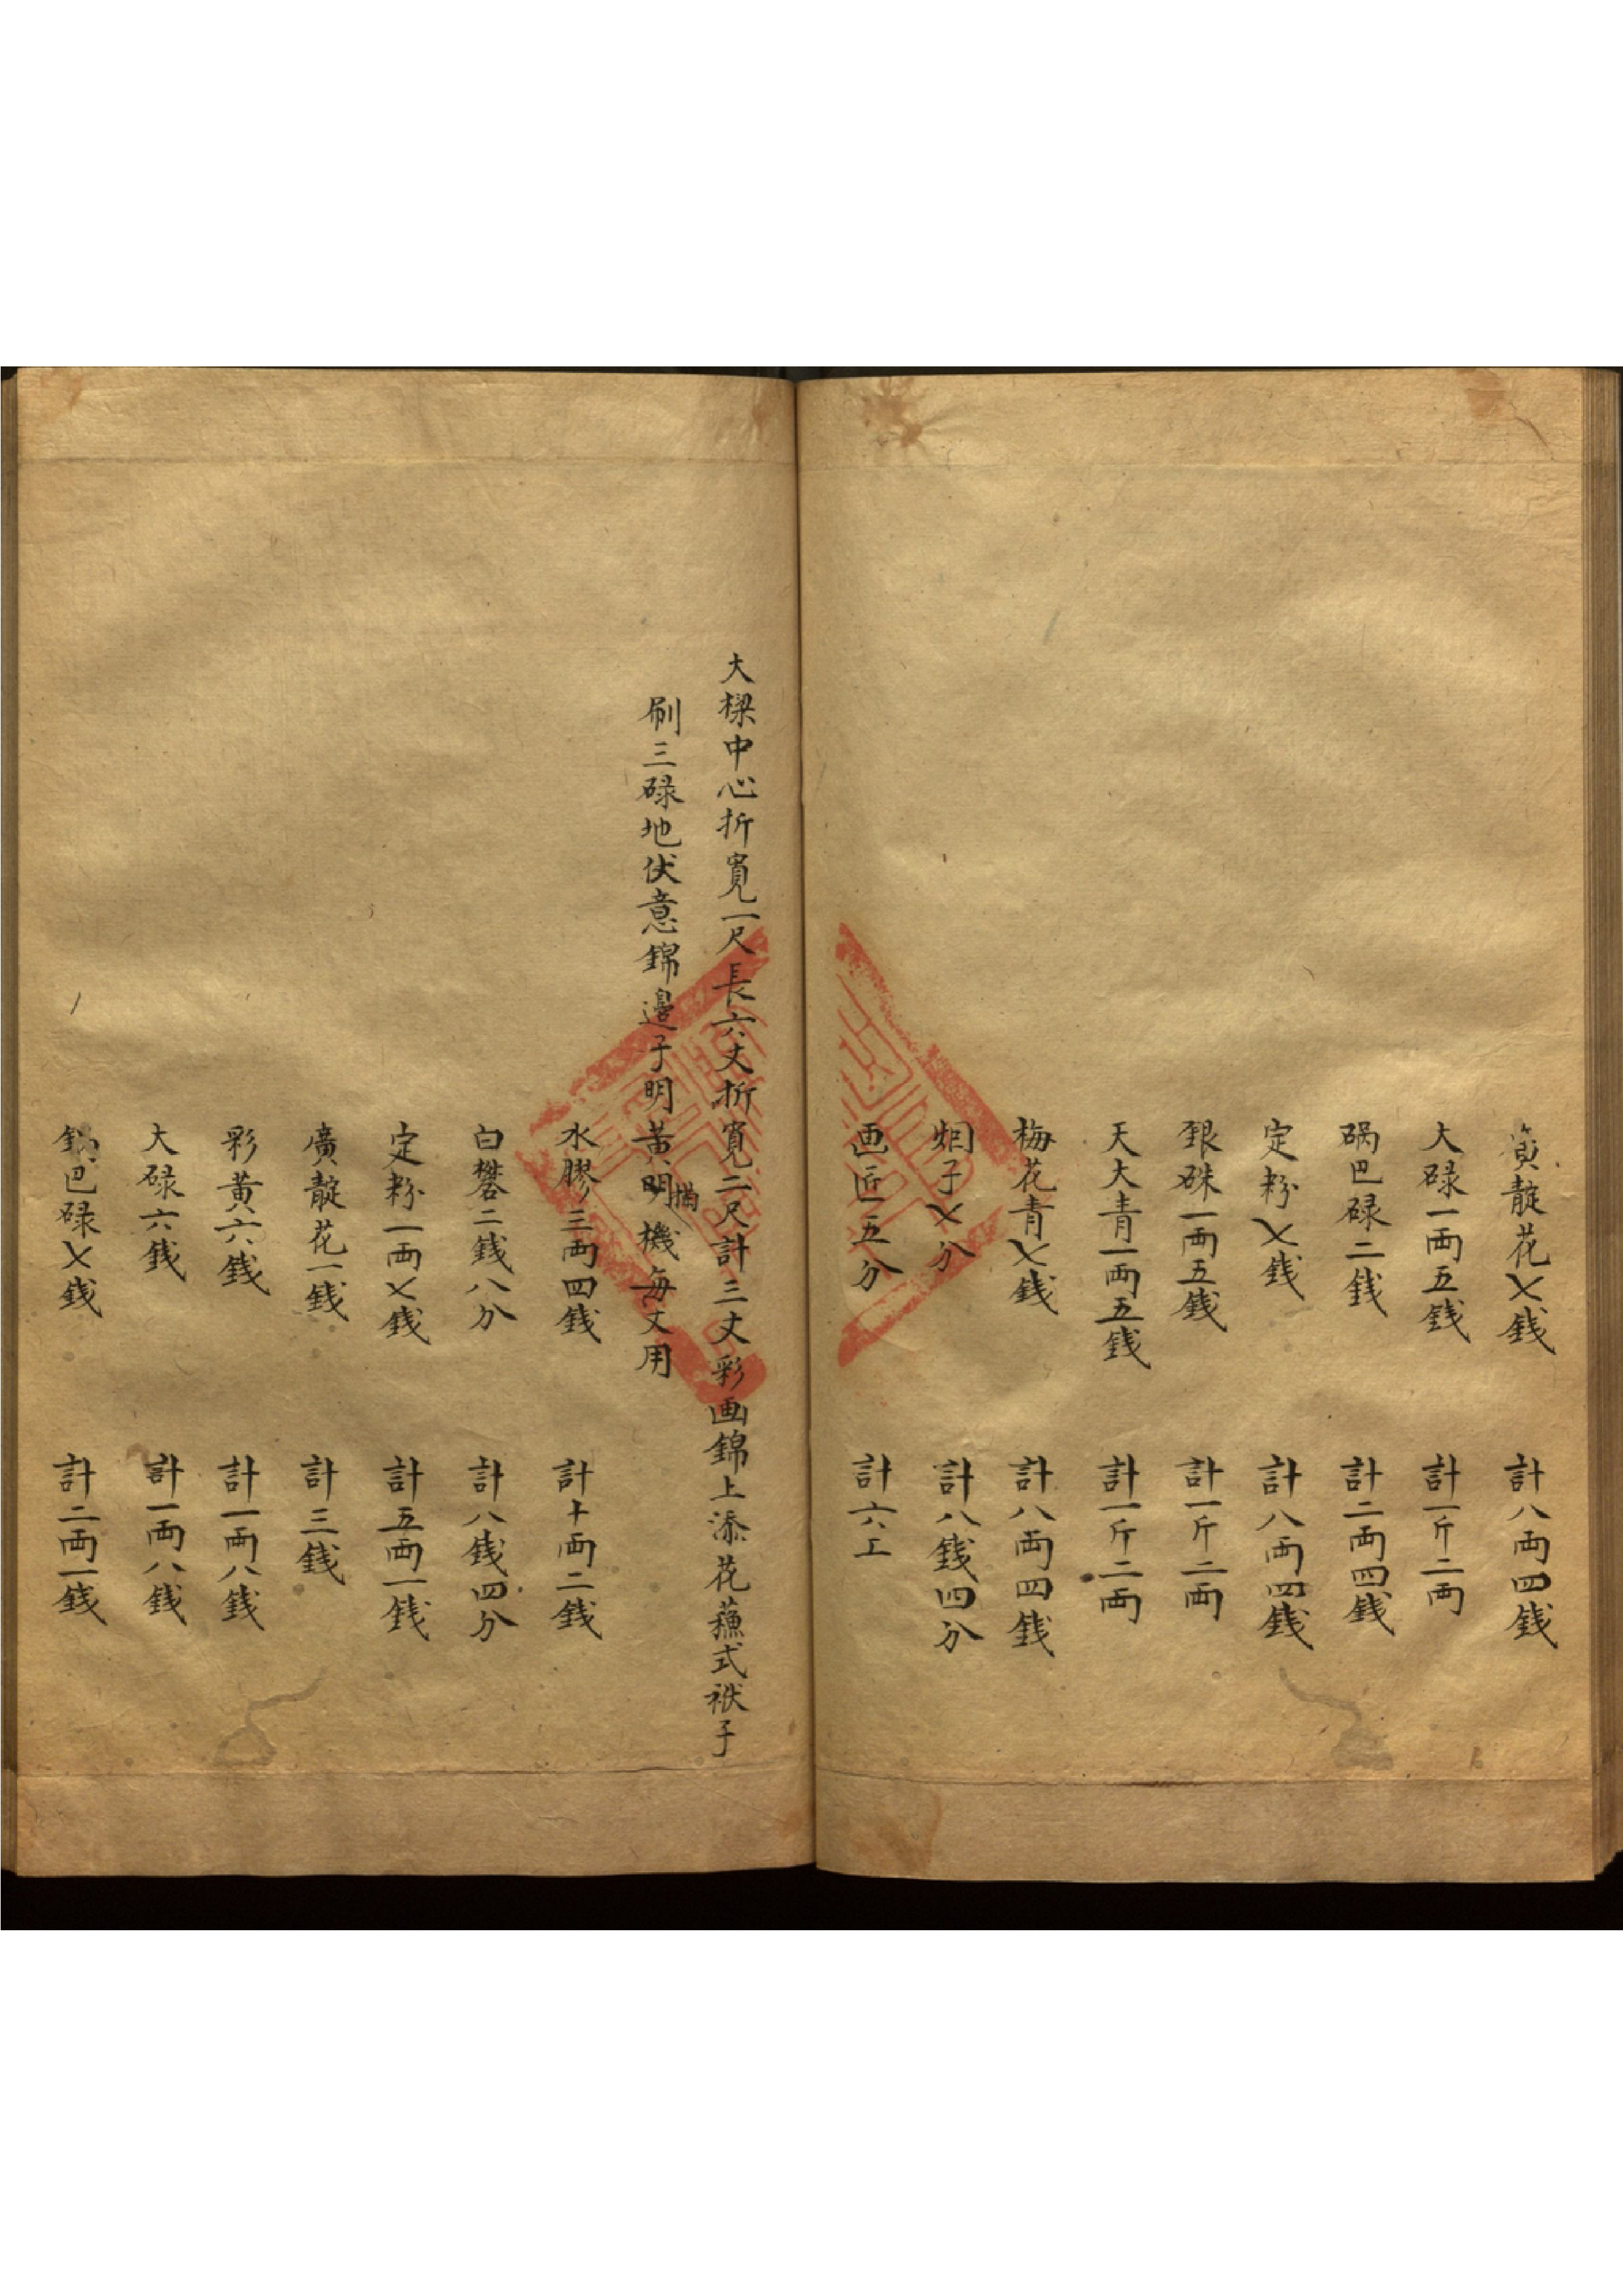 廣靛花七銭 計八両四銭
大碌一両五銭 計一斤二両
碢巴碌二銭 計二両四銭
定粉七銭 計八両四銭
銀硃一両五銭 計一斤二両
天大青一両五銭 計一斤二両
梅花青七銭 計八両四銭
烟子七分 計八銭四分
画匠五分 計六工
大樑中心折寬一尺長六丈折寬二尺計三丈彩画錦上添花蘓式袱子
刷三碌地伏意錦邊子明黃明機每丈用
水膠三両四銭 計十両二銭
白礬二銭八分 計八銭四分
定粉一両七銭 計五両一銭
廣靛花一銭 計三銭
彩黃六銭 計一両八銭
大碌六銭 計一両八銭
鍋巴碌七銭 計二両一銭